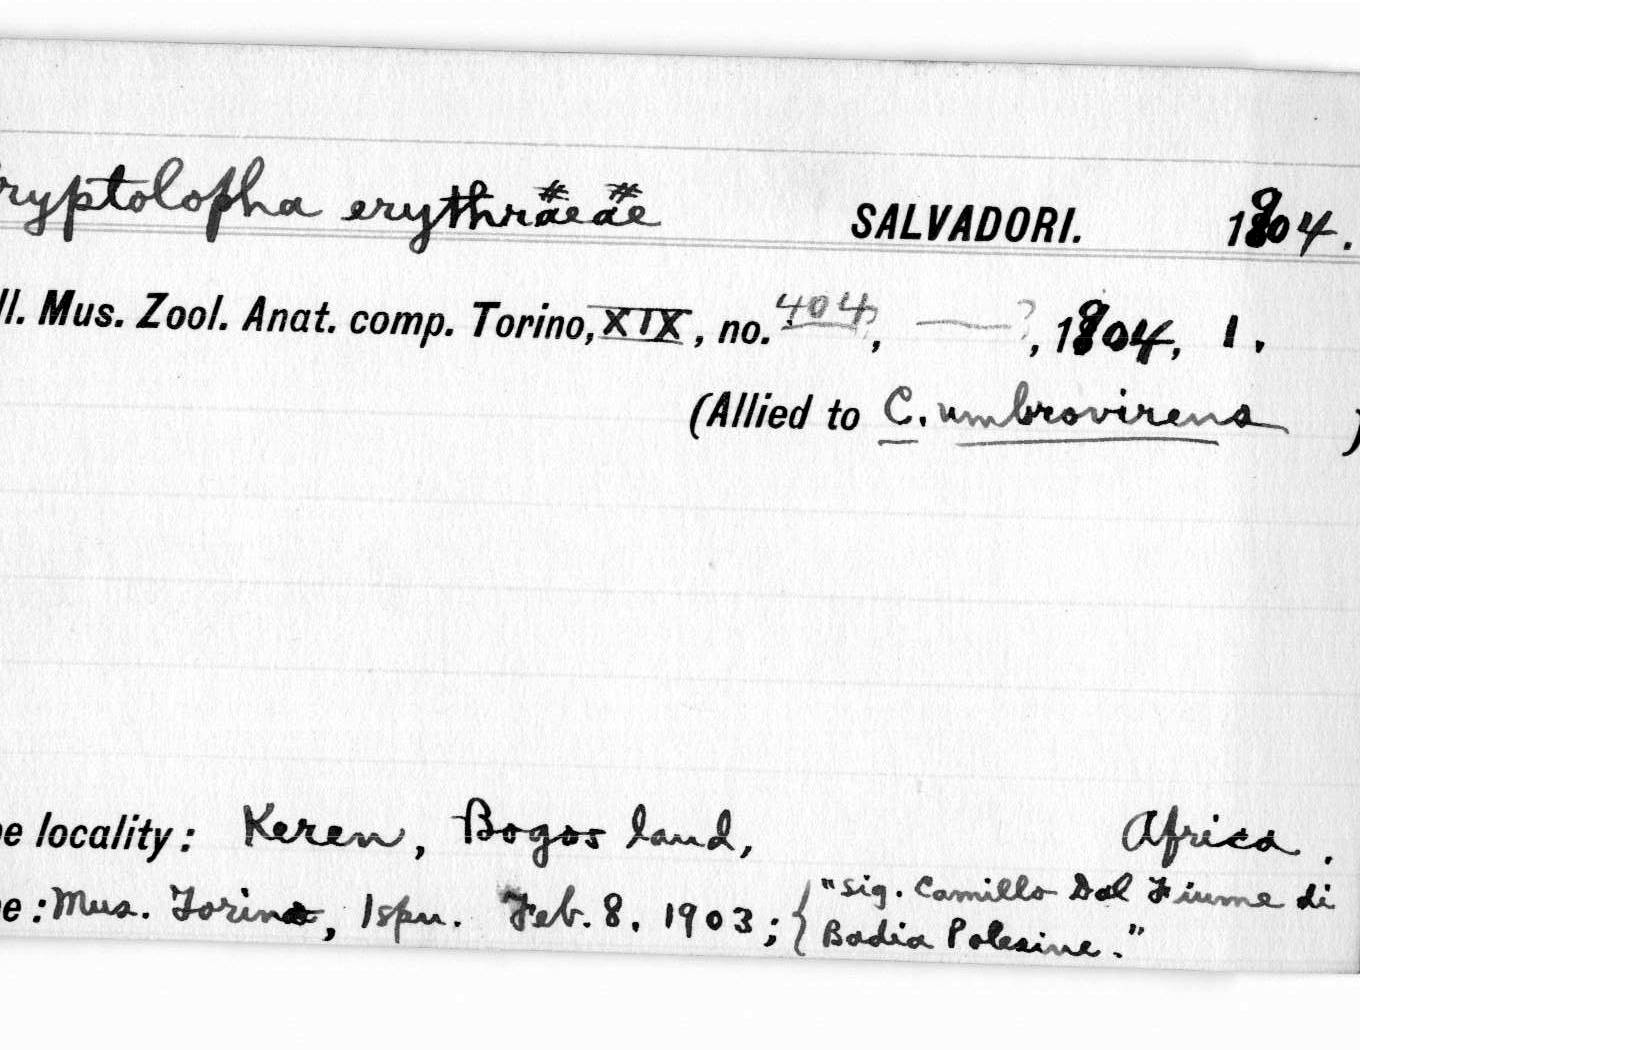 ryptolopha erythraeae SALVADORI. 1904.
ll. Mus. Zool. Anat. comp. Torino, XIX, no. 404?, —?, 1904, 1.
(Allied to C. umbrovirens )
e locality: Keren, Bogos land, Africa.
e: Mus. Torino, 1spn. Feb. 8, 1903; { "Sig. Camillo Dal Fiume di
Badia Polesine."